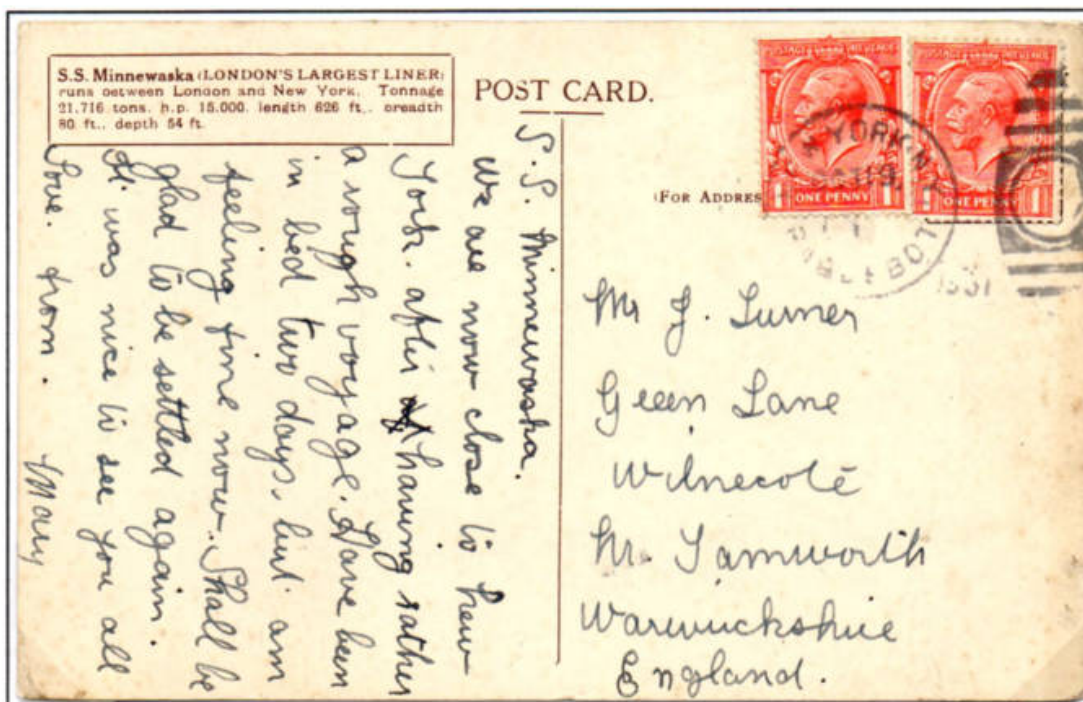 S.S. Minnewaska (LONDON'S LARGEST LINER)
runs between London and New York. Tonnage
21,716 tons. h.p. 15,000. length 626 ft., breadth
80 ft., depth 54 ft.
POST CARD.
(FOR ADDRES
POSTAGE REVENUE
ONE PENNY
POSTAGE REVENUE
ONE PENNY
YORK, N.
1931
S. S. Minnewaska.
We are now close to New
York. after having rather
a rough voyage. Have been
in bed two days, but am
feeling fine now. Shall be
glad to be settled again.
It was nice to see you all
Love. from. Mary
Mr J. Turner
Green Lane
Wilnecote
Nr. Tamworth
Warwickshire
England.